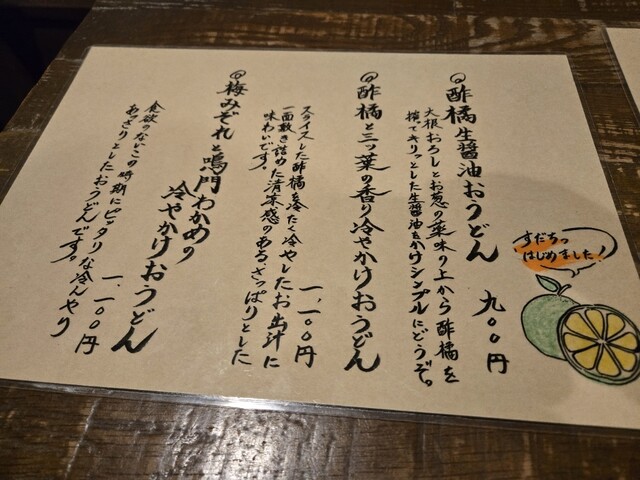 すだちっ
はじめました!
◎酢橘生醤油おうどん
大根おろしとお葱の薬味の上から酢橘を
搾てキリっとした生醤油をかけシンプルにどうぞ。
九〇〇円
◎酢橘と三ッ葉の香り冷やかけおうどん
スライスした酢橘を冷たく冷やしたお出汁に
一面敷き詰めた清涼感のあるさっぱりとした
味わいです。
一、一〇〇円
◎梅みぞれと鳴門わかめの
冷やかけおうどん
食欲のないこの時期にピッタリな冷んやり
あっさりとしたおうどんです。
一、一〇〇円